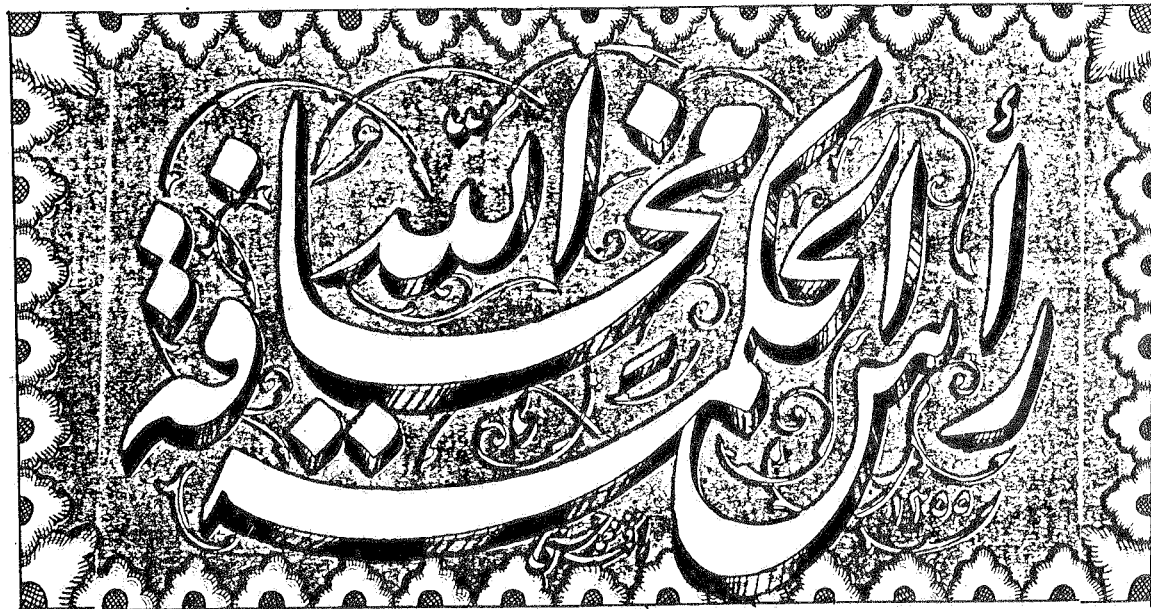 رأس الحكمة مخافة الله
١٢٥٥